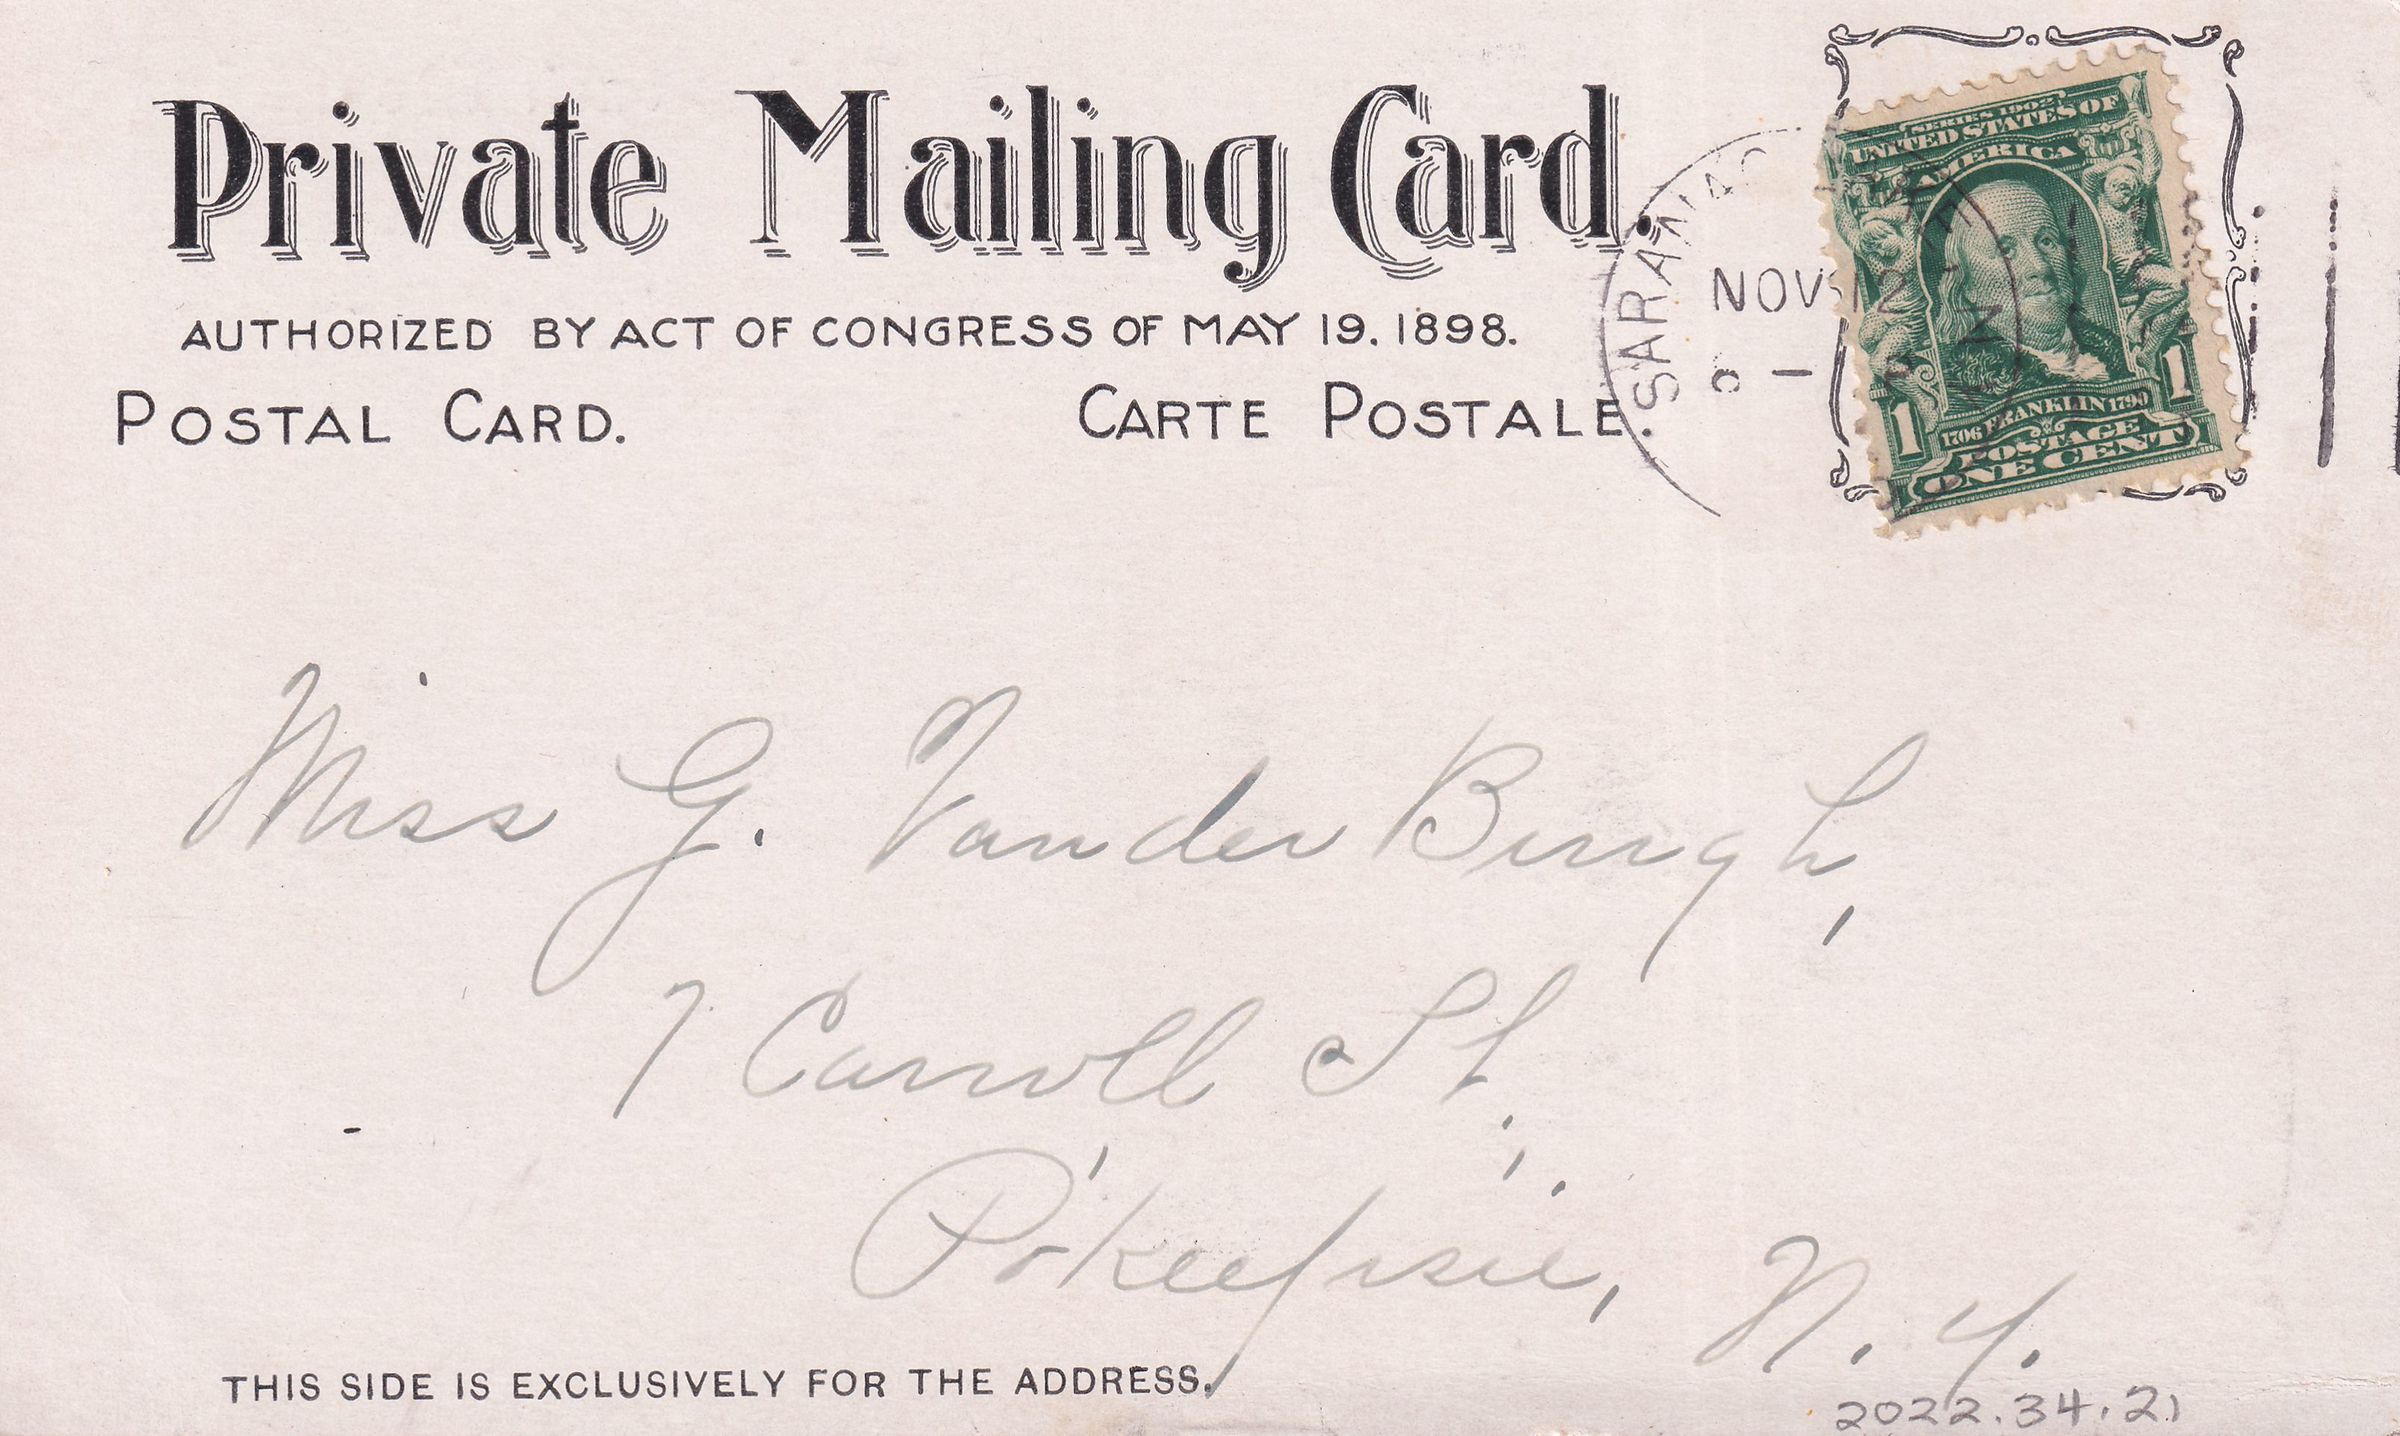 Private Mailing Card.
AUTHORIZED BY ACT OF CONGRESS OF MAY 19. 1898.
POSTAL CARD. CARTE POSTALE.
SARANAC
NOV 12
SERIES 1902
UNITED STATES OF
AMERICA
1706 FRANKLIN 1790
1 POSTAGE 1
ONE CENT
Miss G. Vander Burgh,
7 Carroll St.,
Po'keepsie,
N. Y.
THIS SIDE IS EXCLUSIVELY FOR THE ADDRESS.
2022.34.21